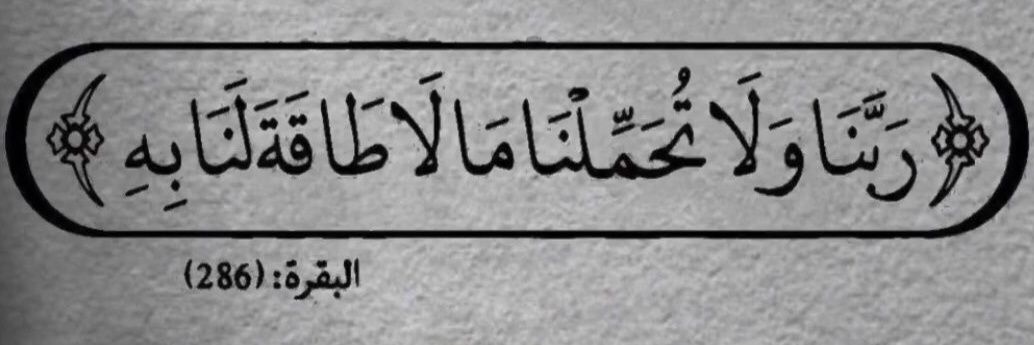 رَبَّنَا وَلَا تُحَمِّلْنَا مَا لَا طَاقَةَ لَنَا بِهِ
البقرة: (286)